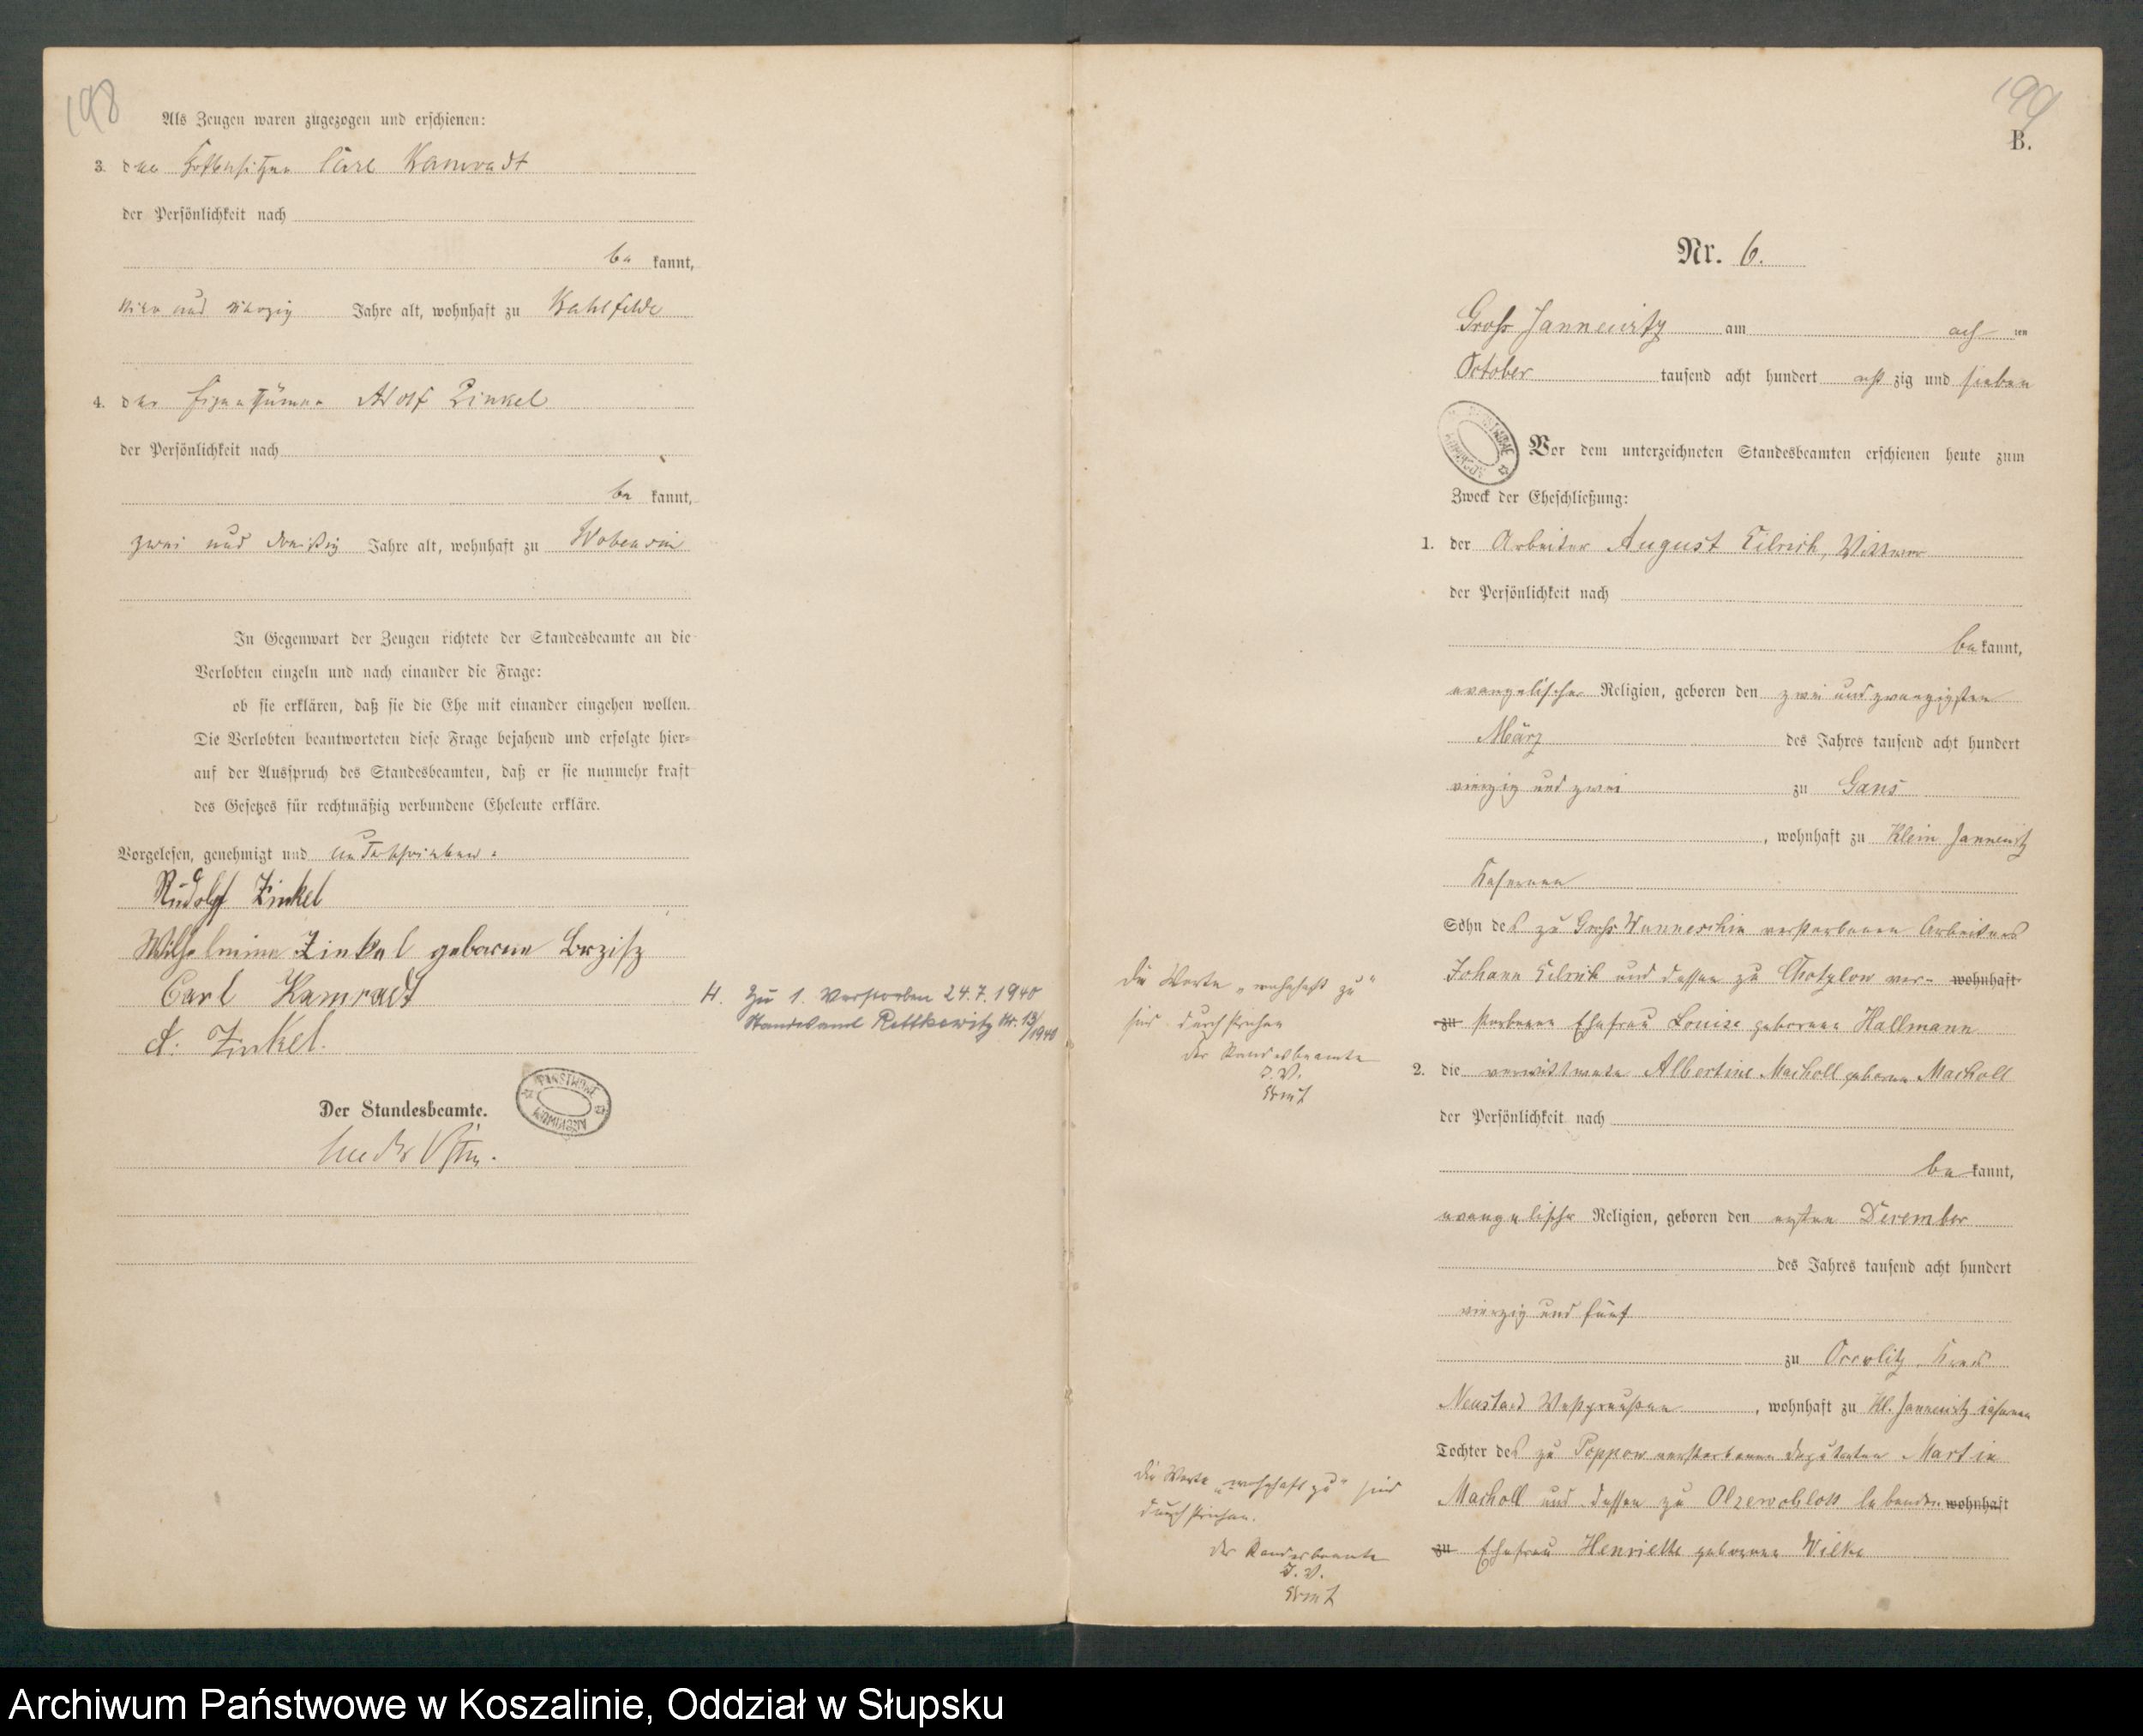 198
Als Zeugen waren zugezogen und erschienen:
3. der Hofbesitzer Carl Kamradt
der Persönlichkeit nach
be kannt,
vier und vierzig Jahre alt, wohnhaft zu Kahlfelde
4. der Eigenthümer Adolf Zinkel
der Persönlichkeit nach
be kannt,
zwei und dreißig Jahre alt, wohnhaft zu Wobensin
In Gegenwart der Zeugen richtete der Standesbeamte an die
Verlobten einzeln und nach einander die Frage:
ob sie erklären, daß sie die Ehe mit einander eingehen wollen.
Die Verlobten beantworteten diese Frage bejahend und erfolgte hier-
auf der Ausspruch des Standesbeamten, daß er sie nunmehr kraft
des Gesetzes für rechtmäßig verbundene Eheleute erkläre.
Vorgelesen, genehmigt und unterschrieben.
Rudolf Zinkel
Wilhelmine Zinkel geborene
Carl Kamradt
A. Zinkel.
Der Standesbeamte.
H. Zu 1. Verstorben 24.7.1940
Standesamt Rettkewitz Nr. 13/1940
199
B.
Nr. 6.
Groß Jannewitz am ach ten
October tausend acht hundert acht zig und sieben
Vor dem unterzeichneten Standesbeamten erschienen heute zum
Zweck der Eheschließung:
1. der Arbeiter August Wittwer
der Persönlichkeit nach
be kannt,
evangelischer Religion, geboren den zwei und zwanzigsten
März des Jahres tausend acht hundert
vierzig und zwei zu Gans
, wohnhaft zu Klein Jannewitz
Kasernen
Sohn des zu Groß Wunneschin verstorbenen Arbeiters
Johann und dessen zu Chotzlow ver- wohnhaft
zu storbenen Ehefrau Louise geborenen Hallmann
Die Worte „wohnhaft zu"
sind durchstrichen
Der Standesbeamte
I. V.
2. die verwittwete Albertine Macholl geborene Macholl
der Persönlichkeit nach
be kannt,
evangelischer Religion, geboren den ersten December
des Jahres tausend acht hundert
vierzig und fünf
zu Occolitz Kreis
Neustadt Westpreußen , wohnhaft zu Kl. Jannewitz Kasernen
Tochter des zu Poppow verstorbenen Deputanten Martin
Macholl und dessen zu lebenden wohnhaft
zu Ehefrau Henriette geborenen Wilke
Die Worte „wohnhaft zu" sind
durchstrichen.
Der Standesbeamte
I. V.
Archiwum Państwowe w Koszalinie, Oddział w Słupsku